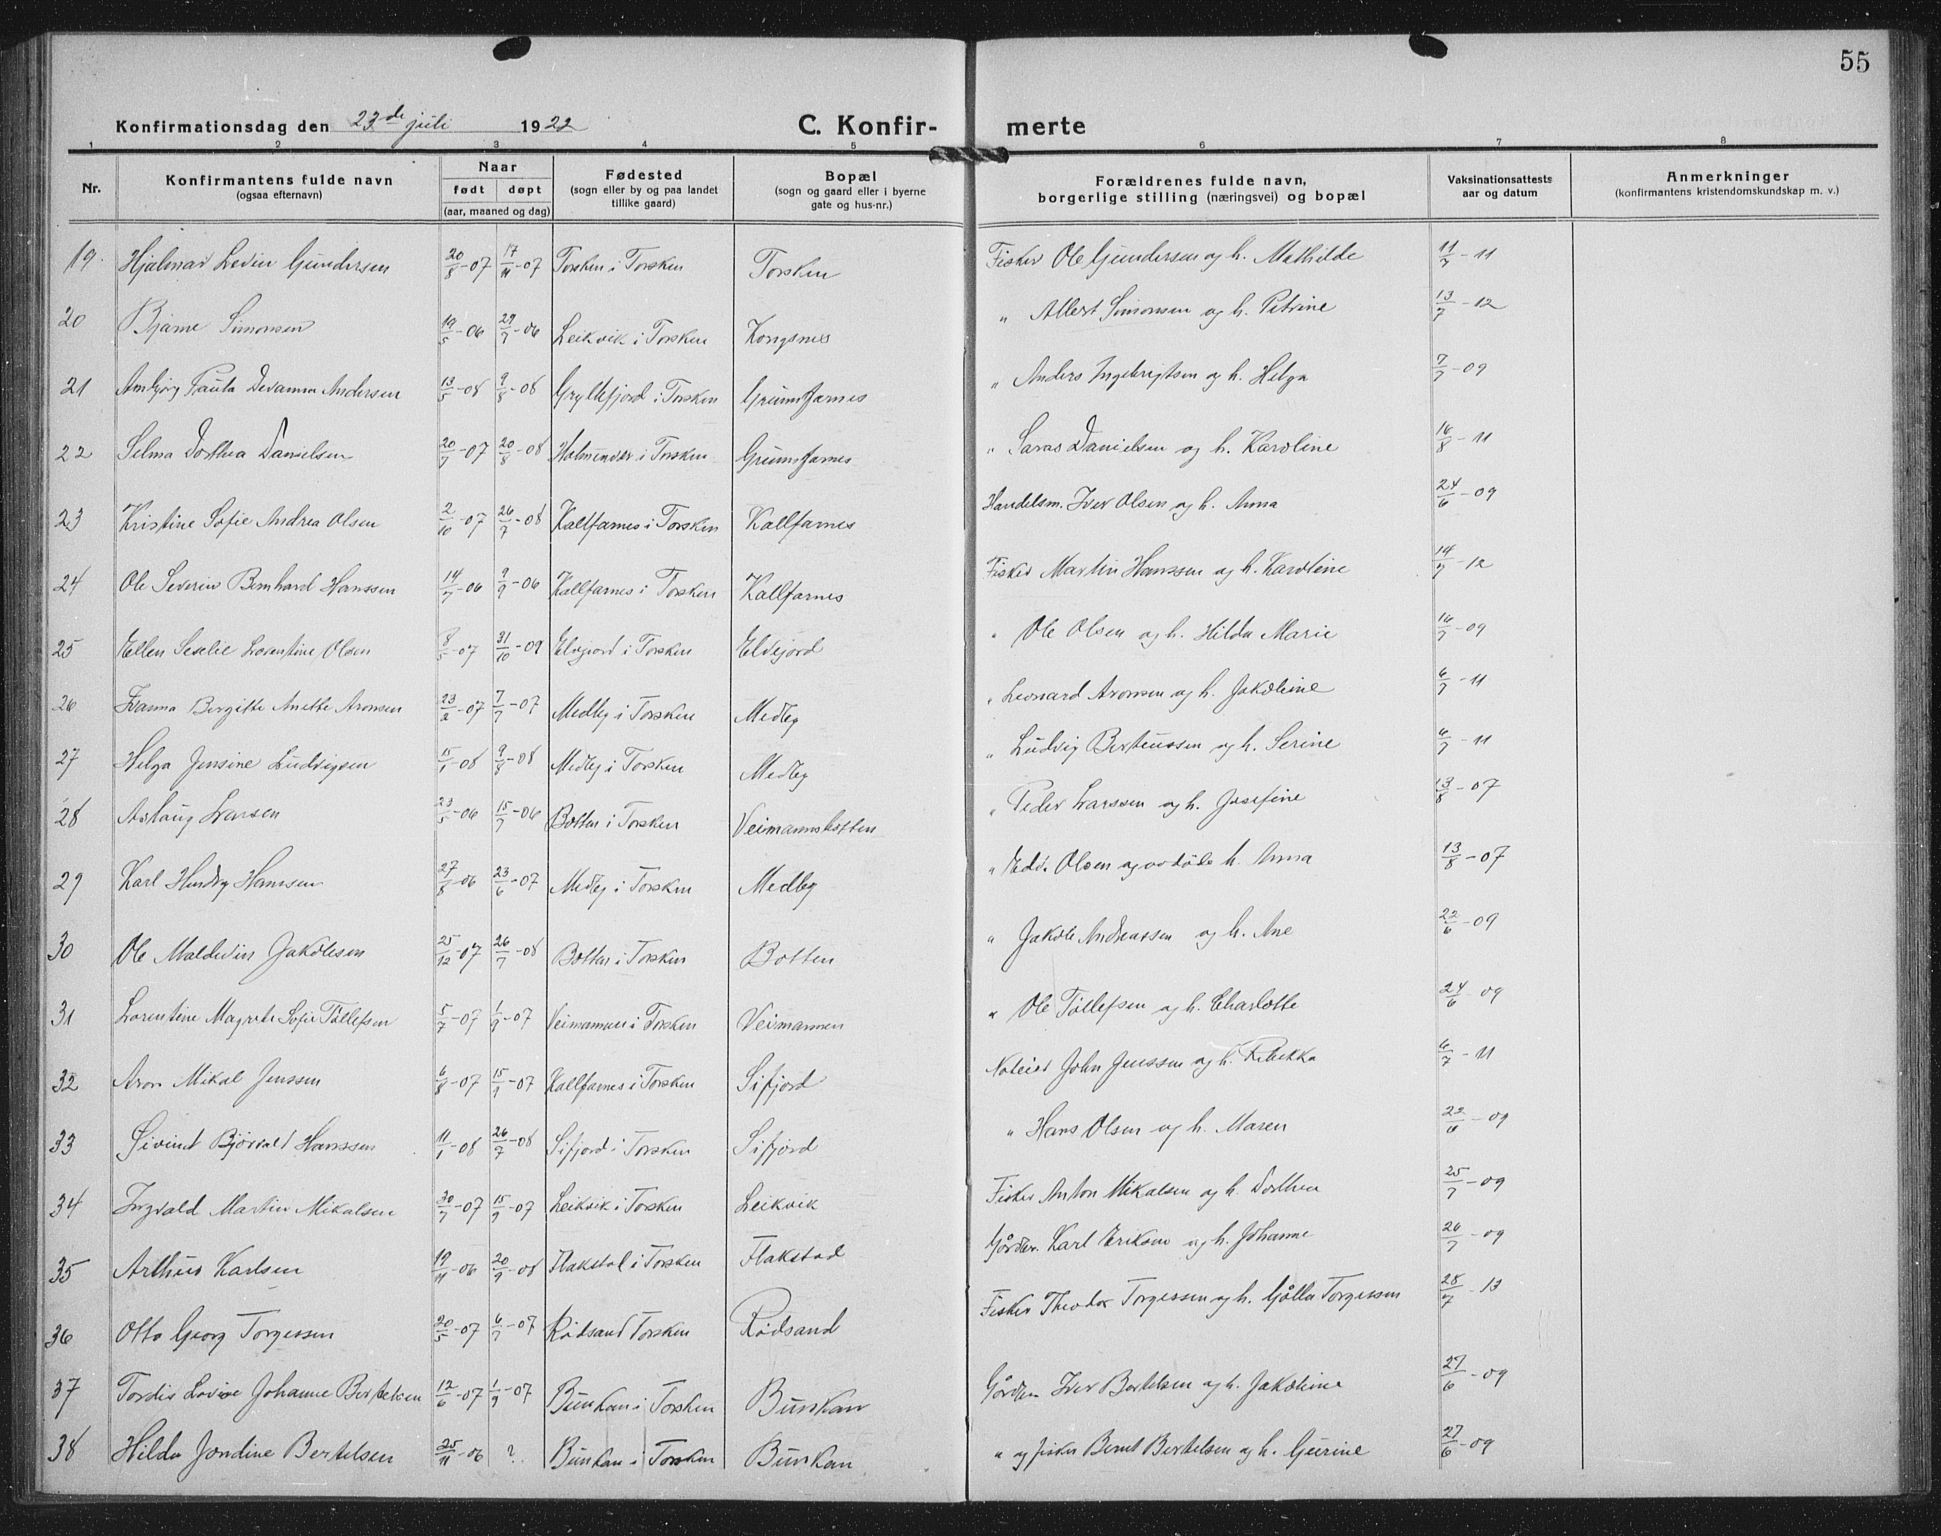 55
Konfirmationsdag den 23de juli 1922 C. Konfir- merte
1 2 3 4 5 6 7 8
Nr. Konfirmantens fulde navn (ogsaa efternavn) Naar født døpt (aar, maaned og dag) Fødested (sogn eller by og paa landet tillike gaard) Bopæl (sogn og gaard eller i byerne gate og hus-nr.) Forældrenes fulde navn, borgerlige stilling (næringsvei) og bopæl Vaksinationsattests aar og datum Anmerkninger (konfirmantens kristendomskundskap m. v.)
19. Hjalmar Levin Gundersen 20/8-07 17/11-07 Torsken i Torsken Torsken Fisker Ole Gundersen og h. Mathilde 11/7-11
20 Bjarne Simonsen 19/5-06 29/7-06 Leikvik i Torsken Kongsnes " Albert Simonsen og h. Petrine 13/7-12
21 Andersen 13/5-08 9/8-08 Gryllefjord i Torsken Grunnfarnes " Anders Ingebrigtsen og h. Helga 7/7-09
22 Selma Dorthea Danielsen 20/7-07 20/8-08 i Torsken Grunnfarnes " Danielsen og h. Karoline 16/8-11
23 Kristine Sofie Andrea Olsen 2/10-07 26/7-08 Kallfarnes i Torsken Kallfarnes Handelsm. Iver Olsen og h. Anna 24/6-09
24 Ole Severin Bernhard Hanssen 14/7-06 9/9-06 Kallfarnes i Torsken Kallfarnes Fisker Martin Hanssen og h. Karoline 14/7-12
25 Ellen Seselie Lorentine Olsen 8/5-07 31/10-09 Elvejord i Torsken Elvejord " Ole Olsen og h. Hilda Marie 16/7-09
26 Hanna Bergitte Anette Aronsen 23/2-07 7/7-07 Medby i Torsken Medby " Leonard Aronsen og h. Jakobine 6/7-11
27 Helga Jensine Ludvigsen 15/1-08 9/8-08 Medby i Torsken Medby " Ludvig Berteussen og h. Serine 6/7-11
28 Aslaug Larsen 23/5-06 15/7-06 Botten i Torsken Veimannsbotten " Peder Larssen og h. Josefine 13/8-07
29 Karl Hanssen 27/8-06 23/6-07 Medby i Torsken Medby " Olsen og h. Anna 13/8-07
30 Ole Maldevin Jakobsen 25/12-07 26/7-08 Botten i Torsken Botten " Jakob Andreassen og h. Ane 22/6-09
31 Lorentine Magrete Sofie Tollefsen 5/7-07 1/9-07 Veimannen i Torsken Veimannen " Ole Tollefsen og h. Charlotte 24/6-09
32 Aron Mikal Jenssen 6/8-07 15/9-07 Kallfarnes i Torsken Sifjord Noteier John Jenssen og h. Rebekka 6/7-11
33 Sivint Bjørvalt Hanssen 11/1-08 26/7-08 Sifjord i Torsken Sifjord " Hans Olsen og h. Maren 22/6-09
34 Ingvald Martin Mikalsen 30/7-07 15/9-07 Leikvik i Torsken Leikvik Fisker Anton Mikalsen og h. Dorthea 25/7-09
35 Arthur Karlsen 19/11-06 20/9-08 Flakstad i Torsken Flakstad Gårdbr. Karl Eriksen og h. Johanne 26/7-09
36 Otto Georg Torgersen 20/5-07 6/7-07 Rødsand Torsken Rødsand Fisker Theodor Torgersen og h. Torgersen 28/7-13
37 Tordis Lovise Johanne Bertelsen 12/6-07 1/9-07 Bunkan i Torsken Bunkan Gårdbr. Iver Bertelsen og h. Jakobine 27/6-09
38 Hilda Jondine Bertelsen 25/11-06 ? Bunkan i Torsken Bunkan " og fisker Bernt Bertelsen og h. Gurine 27/6-09